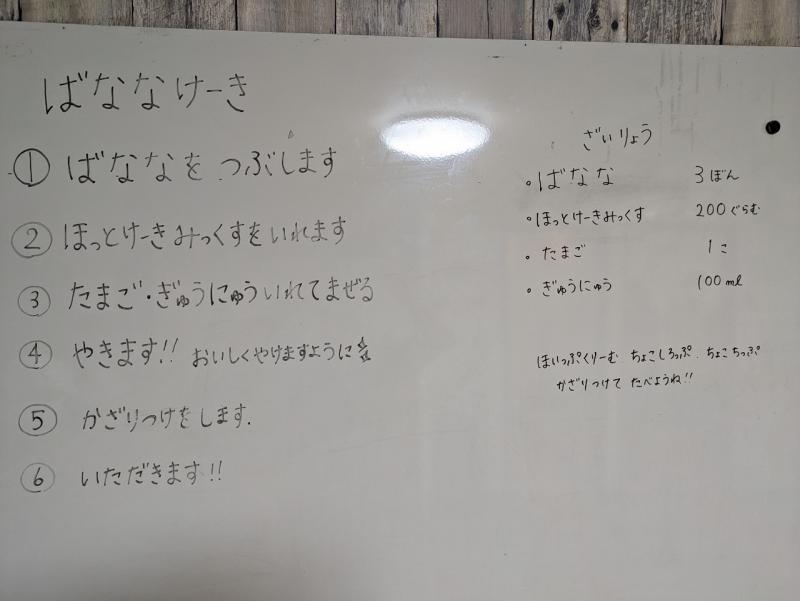 ばななけーき
① ばななを つぶします
② ほっとけーきみっくすをいれます
③ たまご・ぎゅうにゅういれてまぜる
④ やきます!! おいしくやけますように☆
⑤ かざりつけをします.
⑥ いただきます!!
ざいりょう
・ばなな 3ぼん
・ほっとけーきみっくす 200ぐらむ
・たまご 1こ
・ぎゅうにゅう 100ml
ほいっぷくりーむ ちょこしろっぷ. ちょこちっぷ
かざりつけて たべようね!!